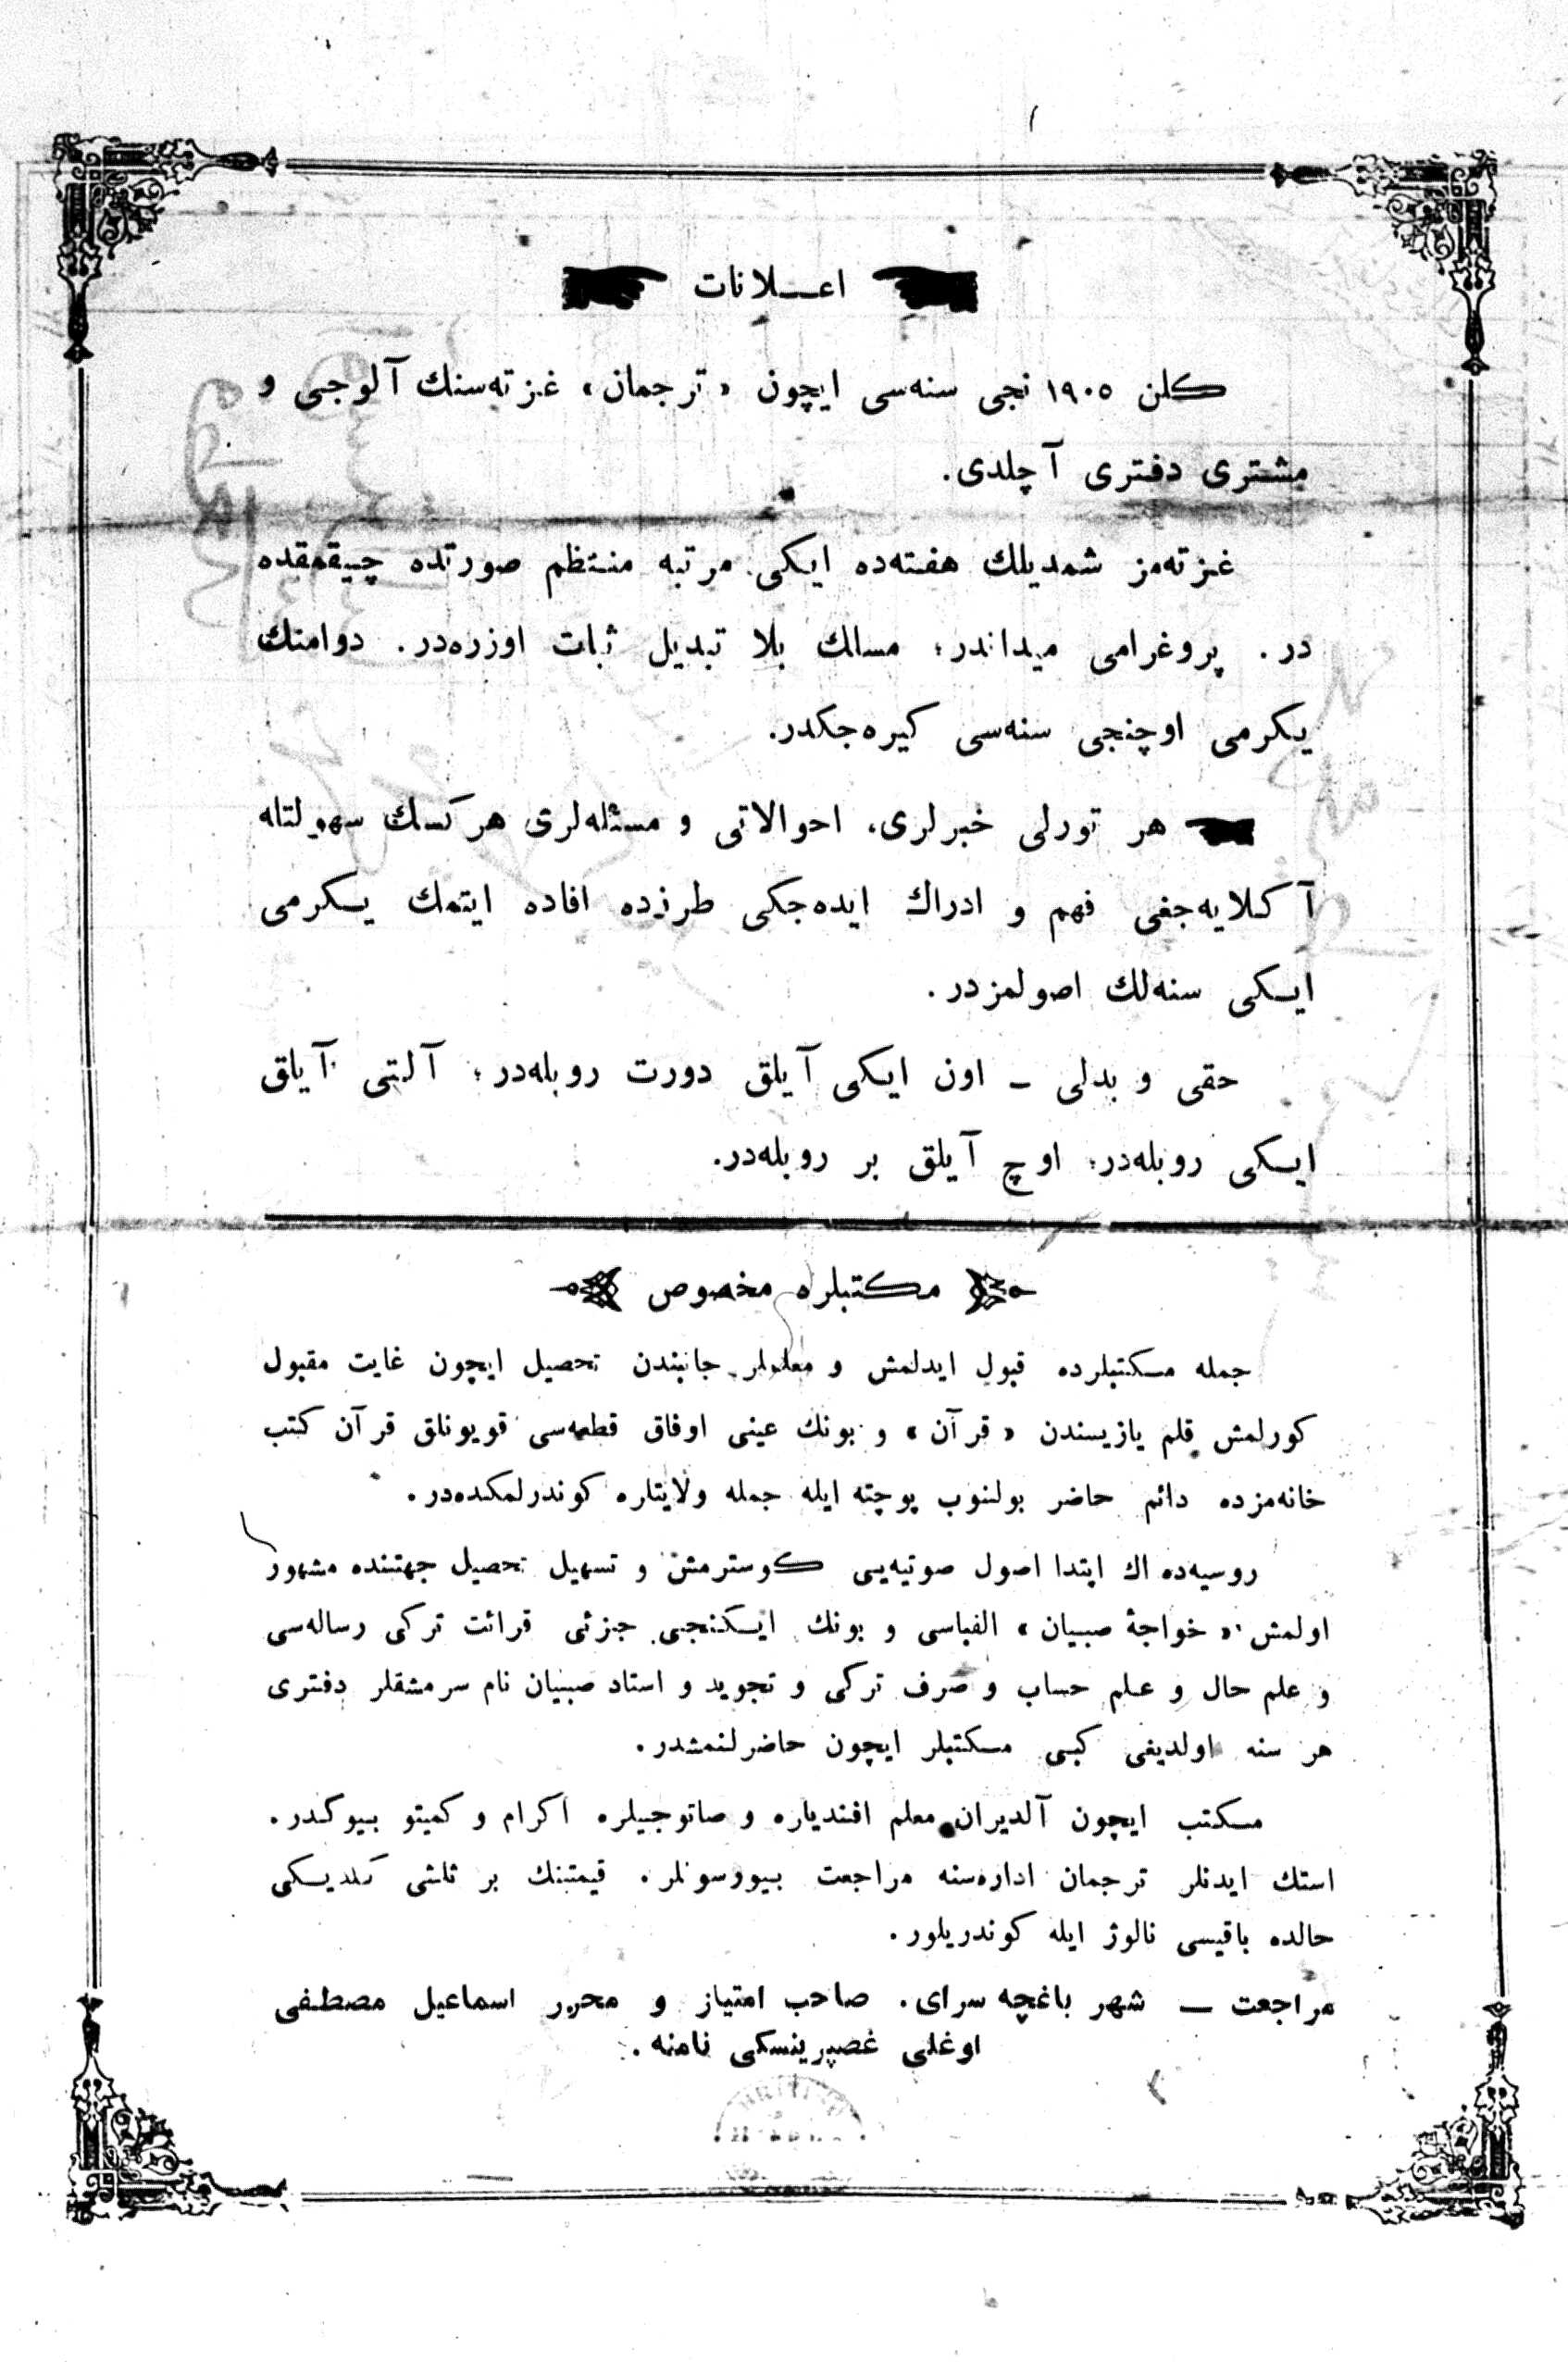 اعلانات
كلن ١٩٠٥ نجى سنه‌سى ايچون «ترجمان» غزته‌سنك آلوجى و
مشترى دفترى آچلدى.
غزته‌مز شمديلك هفته‌ده ايكى مرتبه منتظم صورتده چيقمقده
در. پروغرامى ميداندر؛ مسالك بلا تبديل ثبات اوزره‌در. دوامنك
يكرمى اوچنجى سنه‌سى كيره‌جكدر.
هر تورلى خبرلرى، احوالاتى و مسئله‌لرى هركسك سهولتله
آكلايه‌جغى فهم و ادراك ايده‌جكى طرزده افاده ايتمك يكرمى
ايكى سنه‌لك اصولمزدر.
حقى و بدلى – اون ايكى آيلق دورت روبله‌در؛ آلتى آيلق
ايكى روبله‌در؛ اوچ آيلق بر روبله‌در.
مكتبلره مخصوص
جمله مكتبلرده قبول ايدلمش و معلملر جانبندن تحصيل ايچون غايت مقبول
كورلمش قلم يازيسندن «قرآن» و بونك عينى اوفاق قطعه‌سى قويوناق قرآن كتب
خانه‌مزده دائم حاضر بولنوب پوچته ايله جمله ولايتلره كوندرلمكده‌در.
روسيه‌ده اك ابتدا اصول صوتيه‌يى كوسترمش و تسهيل تحصيل جهتنده مشهور
اولمش «خواجهٔ صبيان» الفباسى و بونك ايكنجى جزئى قرائت تركى رساله‌سى
و علم حال و علم حساب و صرف تركى و تجويد و استاد صبيان نام سرمشقلر دفترى
هر سنه اولديغى كبى مكتبلر ايچون حاضرلنمشدر.
مكتب ايچون آلديران معلم افنديلره و صاتوجيلره اكرام و كميتو بيوكدر.
استك ايدنلر ترجمان اداره‌سنه مراجعت بيووسونلر. قيمتنك بر ثلثى كلديكى
حالده باقيسى نالوژ ايله كوندريلور.
مراجعت – شهر باغچه سراى. صاحب امتياز و محرر اسماعيل مصطفى
اوغلى غصپرينسكى نامنه.